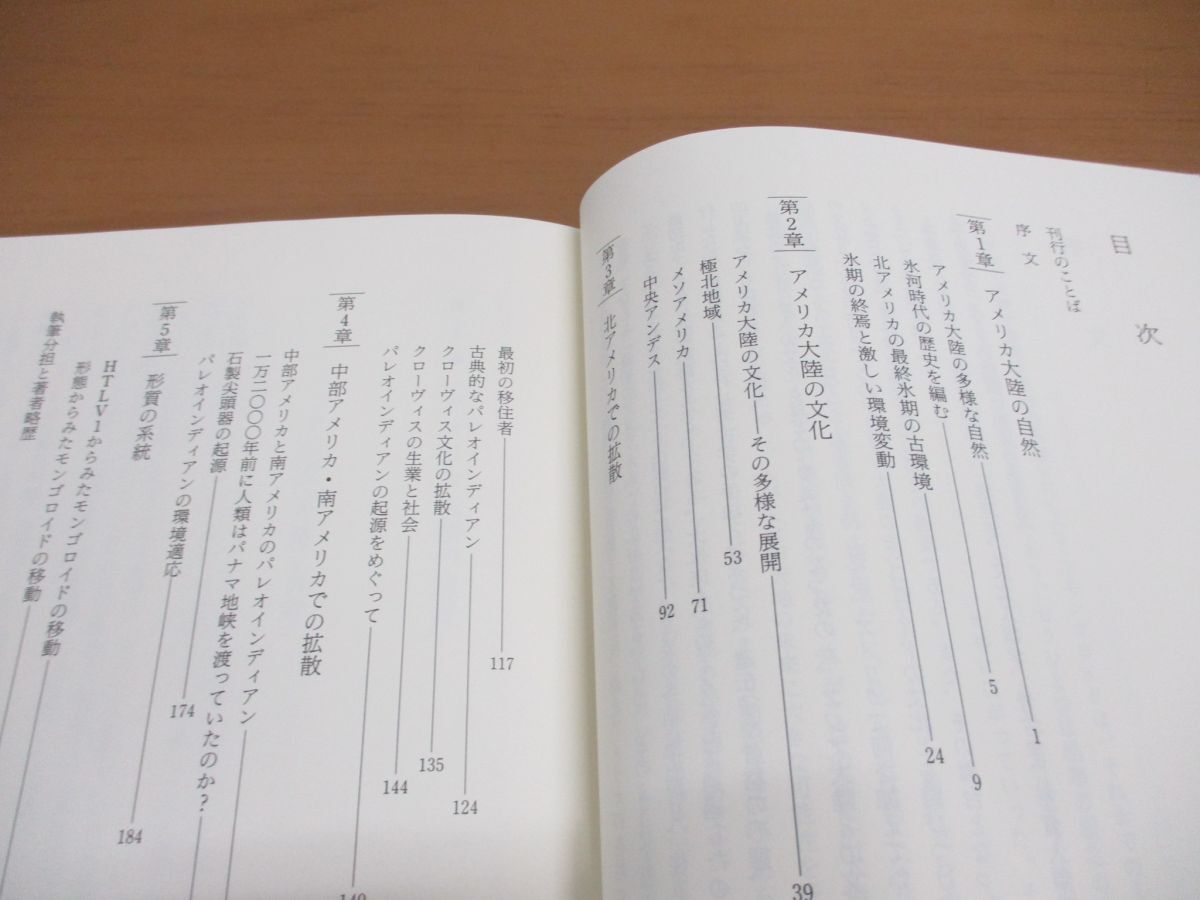 目次
刊行のことば
序文
第1章 アメリカ大陸の自然
アメリカ大陸の多様な自然 1
氷河時代の歴史を編む 5
北アメリカの最終氷期の古環境 9
氷期の終焉と激しい環境変動 24
第2章 アメリカ大陸の文化
アメリカ大陸の文化—その多様な展開 39
極北地域 53
メソアメリカ 71
中央アンデス 92
第3章 北アメリカでの拡散
最初の移住者 117
古典的なパレオインディアン 124
クローヴィス文化の拡散 135
クローヴィスの生業と社会 144
パレオインディアンの起源をめぐって
第4章 中部アメリカ・南アメリカでの拡散
中部アメリカと南アメリカのパレオインディアン
一万二〇〇〇年前に人類はパナマ地峡を渡っていたのか?
石製尖頭器の起源 174
パレオインディアンの環境適応 184
第5章 形質の系統
HTLV1からみたモンゴロイドの移動
形態からみたモンゴロイドの移動
執筆分担と著者略歴